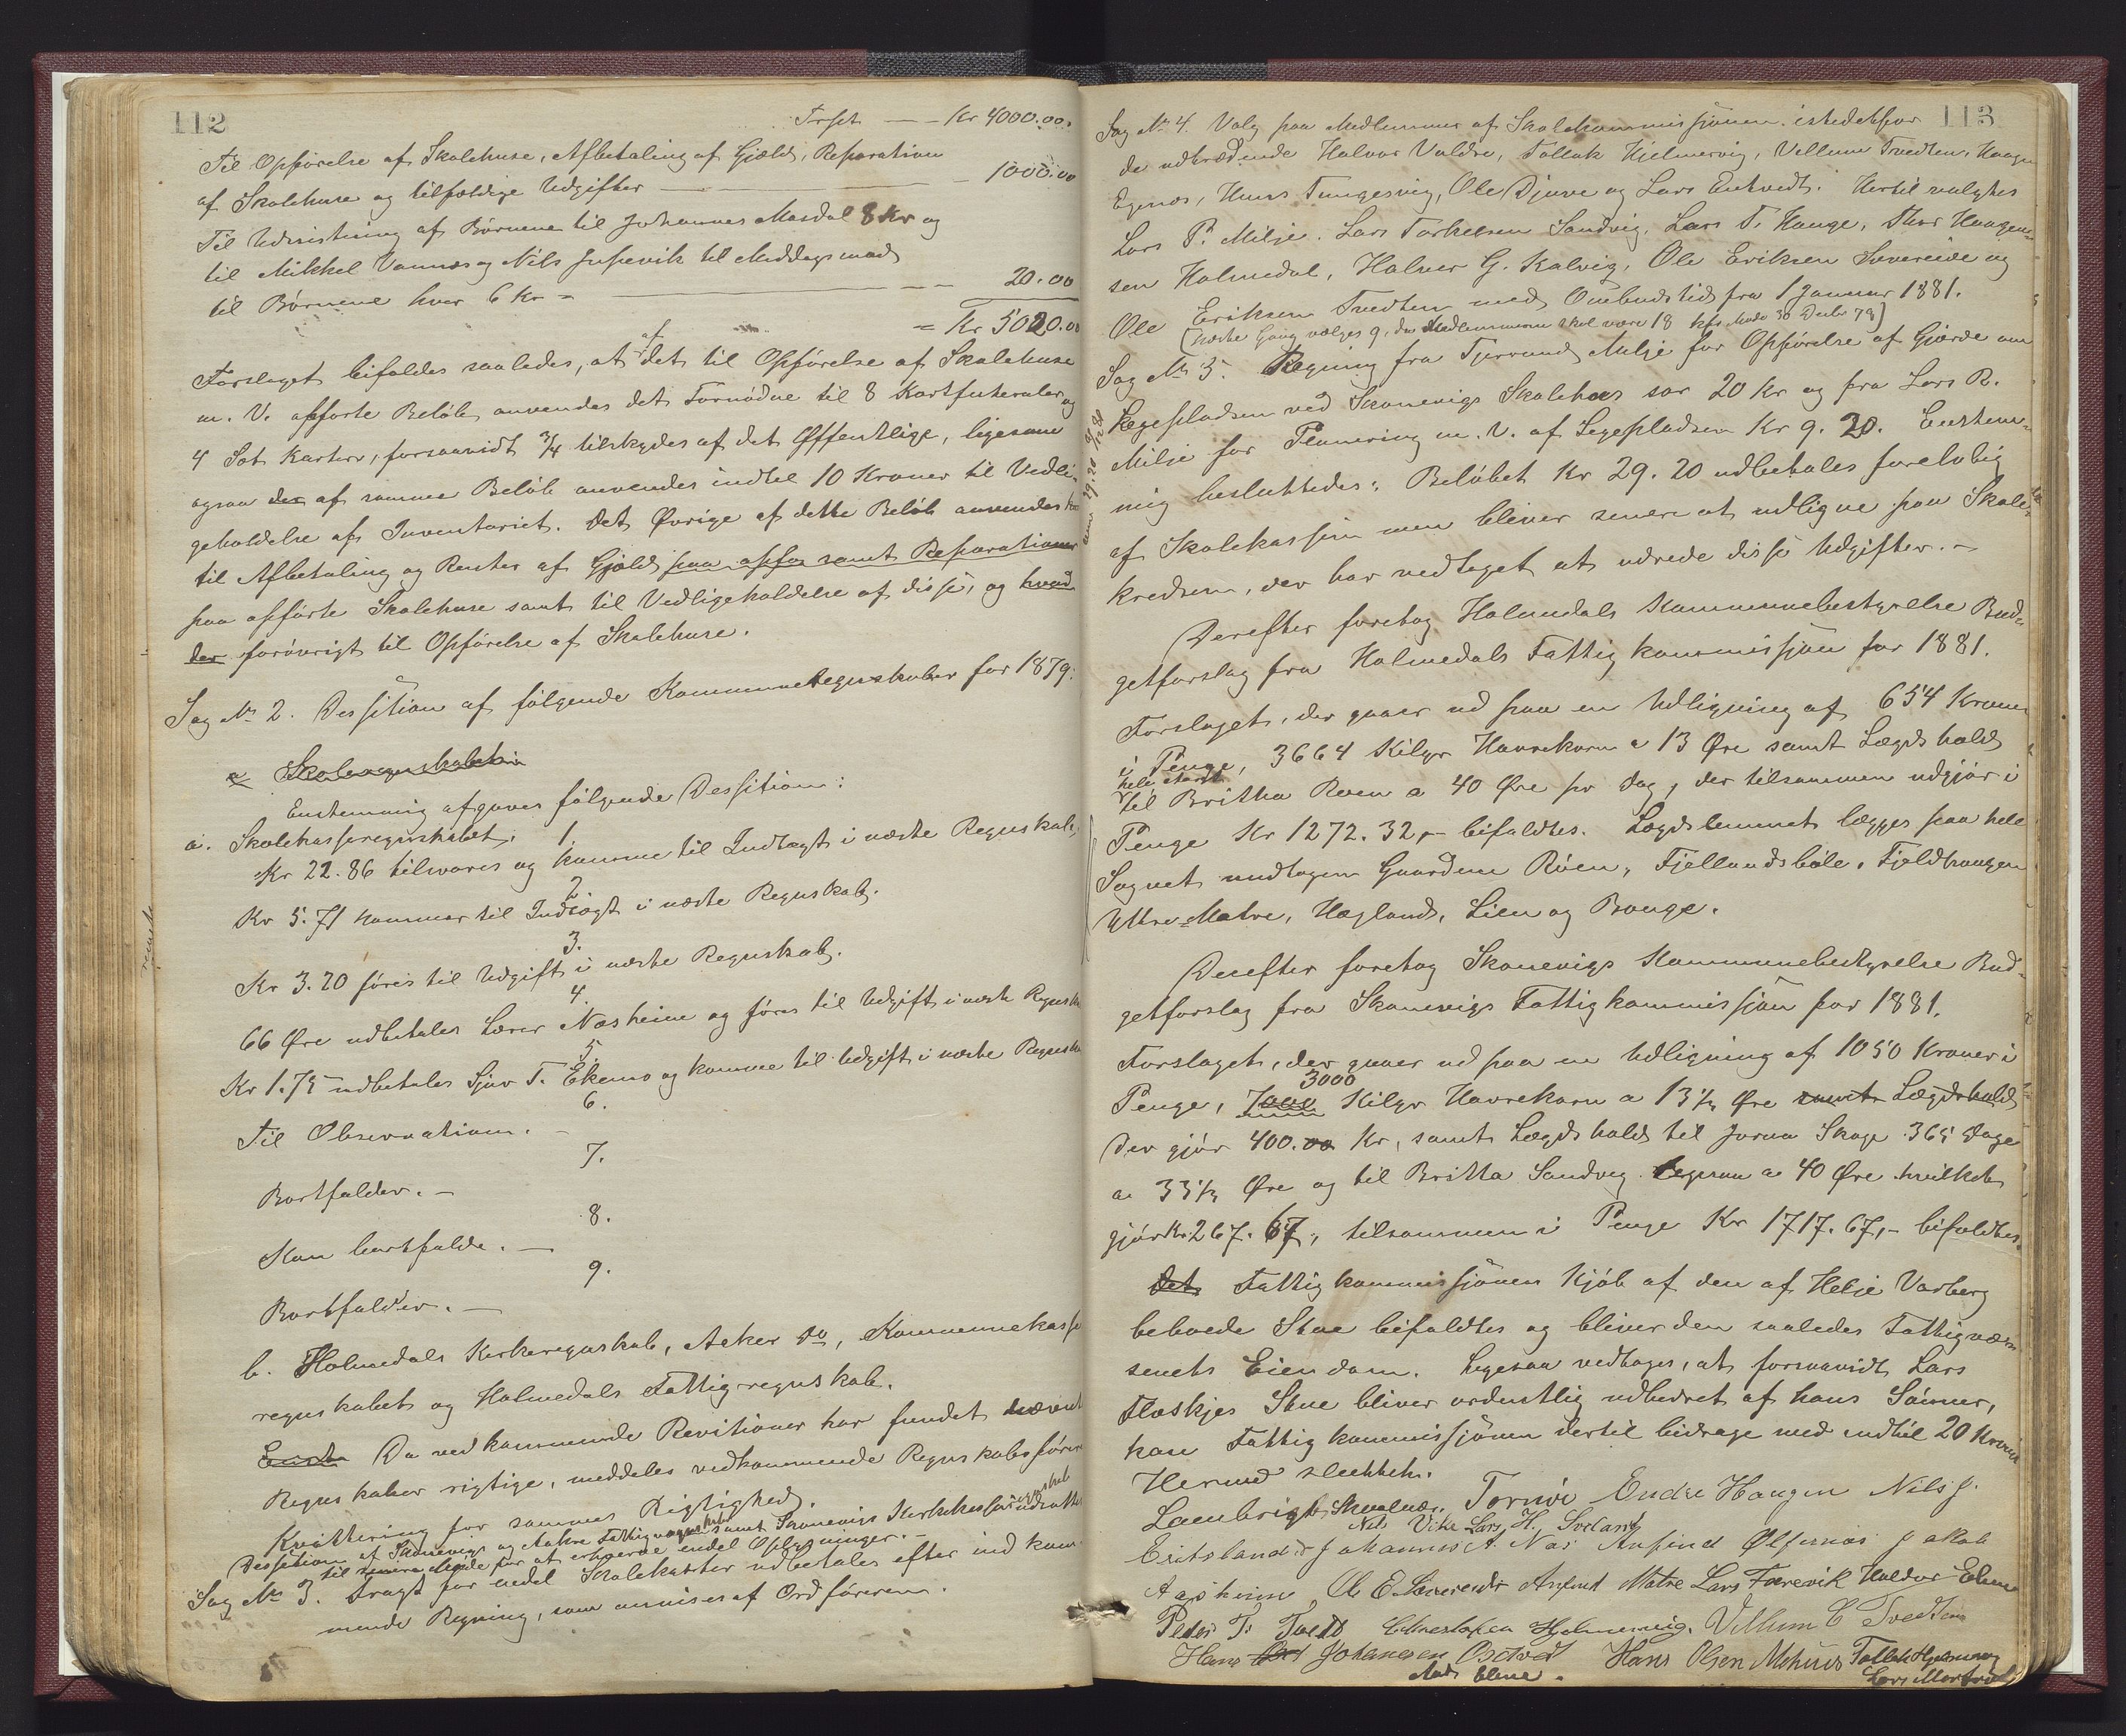 112
Trspt — Kr 4000.00.
Til Opførelse af Skolehuse, Afbetaling af Gjæld, Reparation
af Skolehuse og tilfældige Udgifter — 1000.00
Til Udvisitning af Børnene til Johannes Masdal 8 Kr og
til Mikkel Vannes og Nils til Middagsmad
til Børnene hver 6 Kr = — 20.00
= Kr 5020.00
Forslaget bifaldes saaledes, at af det til Opførelse af Skolehuse
m. V. opførte Beløb anvendes det Fornødne til 8 Kartfuteraler og
4 Set Karter, forsaavidt 3/4 tilskydes af det Offentlige, ligesom
ogsaa der af samme Beløb anvendes indtil 10 Kroner til Vedli-
geholdelse af Inventariet. Det Øvrige af dette Beløb anvendes
til Afbetaling og Renter af Gjæld paa opfø samt Reparationer
paa opførte Skolehuse samt til Vedligeholdelse af disse, og hvad
der forøvrigt til Opførelse af Skolehuse.
Sag No 2. Desission af følgende Kommuneregnskaber for 1879:
a Skoleregnskabet
Enstemmig afgaves følgende Desission:
a. Skolekasseregnskabet. 1.
Kr 22.86 tilsvares og komme til Indtægt i næste Regnskab,
2.
Kr 5.71 kommer til Indtægt i næste Regnskab.
3.
Kr 3.20 føres til Udgift i næste Regnskab.
4.
66 Øre udbetales Lærer Næsheim og føres til Udgift i næste Regnskab
5.
Kr 1.75 udbetales Sjur T. Ekemo og komme til Udgift i næste Regnskab
6.
Til Observation. —
7.
Bortfalder. —
8.
Kan bortfalde. —
9.
Bortfalder. —
b. Holmedals Kirkeregnskab, Aakre do, Kommunekasse
regnskabet og Holmedals Fattigregnskab.
Da vedkommende Revisioner har fundet nævnte
Regnskaber rigtige, meddeles vedkommende Regnskabsførere
Kvittering for sammes Rigtighed.
Desission af Skonevigs og Aakre Fattigregnskaber samt Skonevigs Kirkekasseregnskab udsattes
til senere Møde for at erhverve endel Oplysninger. —
Sag No 3. Fragt for endel Skolekarter udbetales efter indkom-
mende Regning, som anvises af Ordføreren.
113
Sag No 4. Valg paa Medlemmer af Skolekommissjonen istedetfor
de udtrædende Halvor Valdre, Tollak Hjelmervig, Villum Tvedten, Haagen
Egenæs, Hans Tungesvig, Ole Djuve og Lars Entvedt. Hertil valgtes
Lars P. Milje. Lars Torkelsen Sandvig. Lars T. Hauge, Thor Haagen-
sen Holmedal, Halvor G. Kalvig, Ole Eriksen Sævereide og
Ole Eriksen Tvedten med Ombudstid fra 1 Januar 1881.
(næste Gang vælges 9, da Medlemmerne skal være 18 kfr Møde 30 Decbr 79)
Sag No 5. Regning fra Tjerand Milje for Opførelse af Gjærde om
Legepladsen ved Skonevigs Skolehus stor 20 Kr og fra Lars R.
Milje for Planering m. V. af Legepladsen Kr 9.20. Enstem-
mig besluttedes: Beløbet Kr 29.20 udbetales foreløbig
af Skolekassen men bliver senere at udligne paa Skole-
kredsen, der har vedtaget at udrede disse Udgifter. —
Derefter foretog Holmedals Kommunebestyrelse Bud-
getforslag fra Holmedals Fattigkommissjon for 1881.
Forslaget, der gaaer ud paa en Udligning af 654 Kroner
i Penge, 3664 Kilgr Havrekorn a 13 Øre samt Lægdshold
til Britha Røen a 40 Øre pr Dag, der tilsammen udgjør i
Penge Kr 1272.32, — bifaldtes. Lægdslemmet lægges paa hele
Sognet undtagen Gaardene Røen, Fjellandsbøle, Fjeldhaugen
Ytre-Matre, Hægland, Lien og Bauge.
Derefter foretog Skonevigs Kommunebestyrelse Bud-
getforslag fra Skonevigs Fattigkommissjon for 1881.
Forslaget, der gaaer ud paa en Udligning af 1050 Kroner i
Penge, 3000 Kilgr Havrekorn a 13 1/3 Øre samt Lægdshold
Der gjør 400.00 Kr, samt Lægdshold til Jorna Skage 365 Dage
a 33 1/3 Øre og til Britta Sandvig ligesaa a 40 Øre hvilket
gjør Kr. 267.67, tilsammen i Penge Kr 1717.67, — bifaldtes.
Det Fattigkommissjonens Kjøb af den af Helje Varberg
beboede Stue bifaldtes og bliver den saaledes Fattigvæs-
senets Eiendom. Ligesaa vedtages, at forsaavidt Lars
Flaskjes Stue bliver ordentlig udbedret af hans Sønner,
kan Fattigkommissjonen dertil bidrage med indtil 20 Kroner
Hermed sluttet.
Lambrigt Skaalnæs. Tornøe Endre Haugen Nils J.
Nils Vike Lars H. Sveland
Eritsland Johannes A. Næs Anfind Ølfernæs Jakob
Aasheim Ole E. Sævereide Anfind Matre Lars Færevik Haldor Ebne
Peder T. Tvedt Christofer Hjelmervig. Villum C Tvedten
Hans Johannesen Østved Hans Olsen Mehus Tollak Hjelmervig
Aad Ebne. Lars Mortved